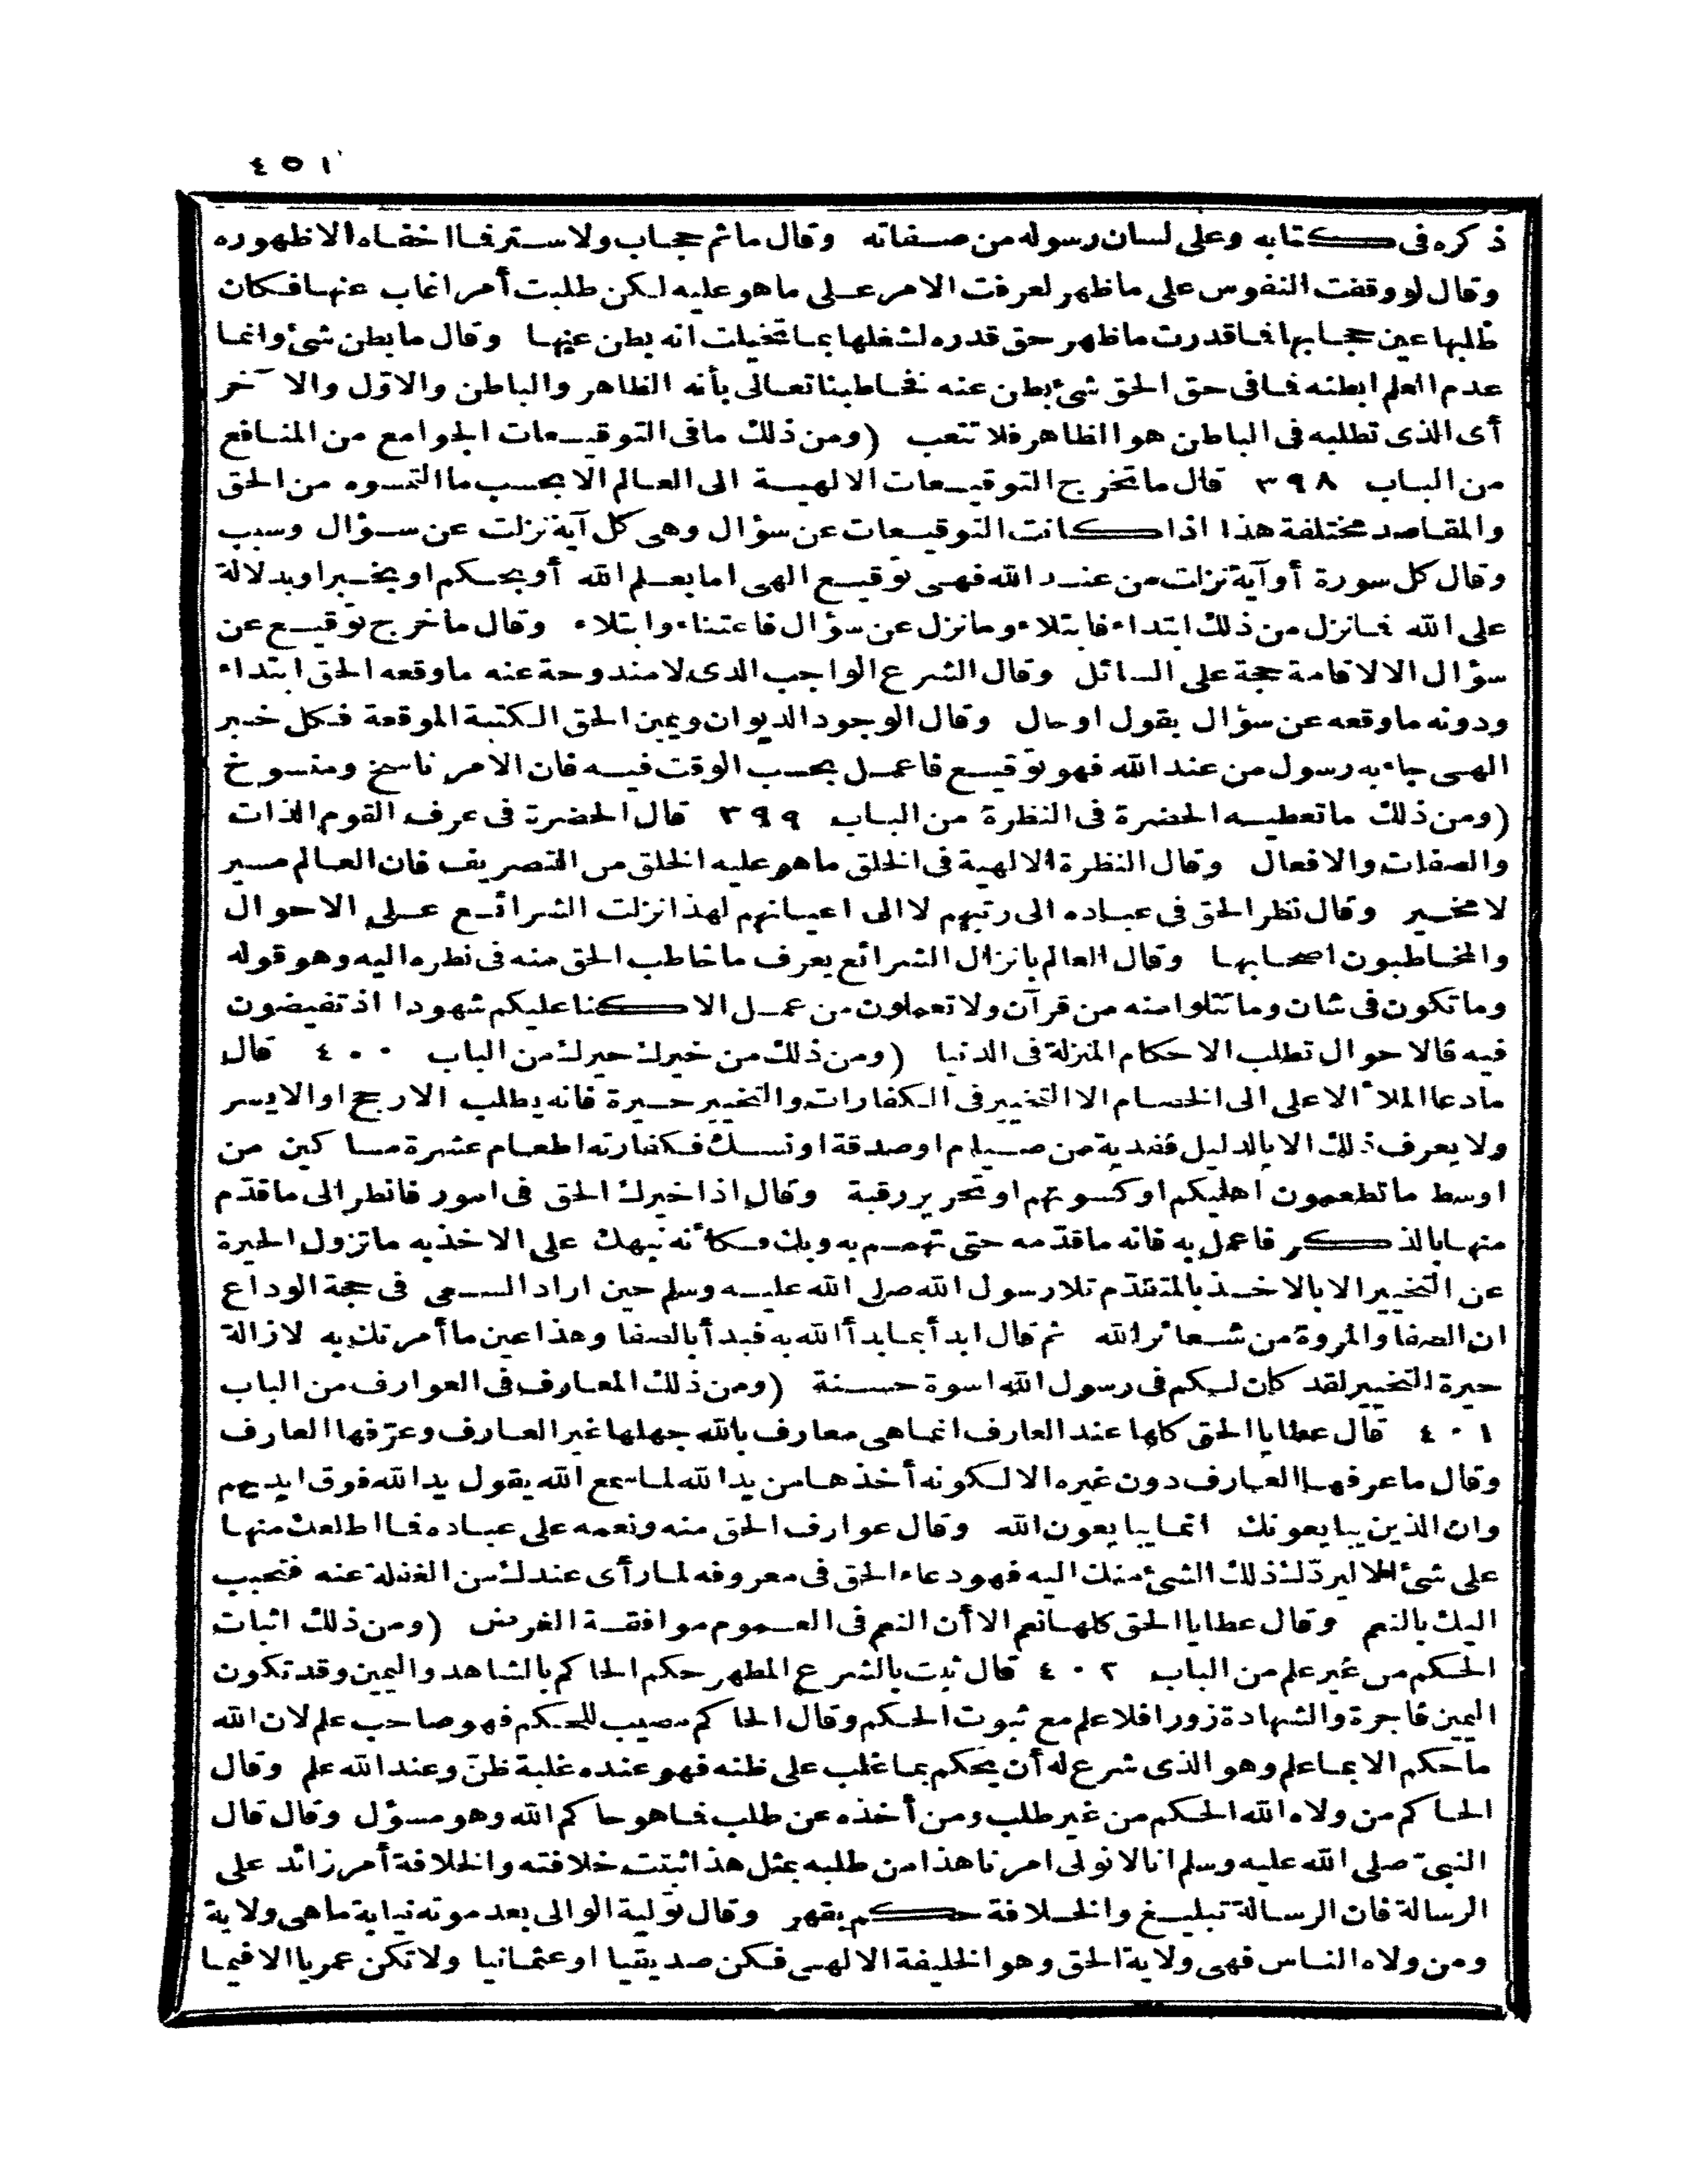 ٤٥١
ذكره فى كتابه وعلى لسان رسوله من صفاته وقال ماثم حجاب ولا ستر فما اخفاه الا ظهوره
وقال لو وقفت النفوس على ما ظهر لعرفت الامر على ما هو عليه لكن طلبت أمر اغاب عنها فكان
طلبها عين حجابها فما قدرت ما ظهر حق قدره لشغلها بما تخيلت انه بطن عنها وقال ما بطن شئ وانما
عدم العلم ابطنه فما فى حق الحق شئ بطن عنه فخاطبنا تعالى بأنه الظاهر والباطن والاوّل والآخر
أى الذى تطلبه فى الباطن هو الظاهر فلا تتعب (ومن ذلك ما فى التوقيعات الجوامع من المنافع
من الباب ٣٩٨ قال ما تخرج التوقيعات الالهية الى العالم الا بحسب ما التمسوه من الحق
والمقاصد مختلفة هذا اذا كانت التوقيعات عن سؤال وهى كل آية نزلت عن سؤال وسبب
وقال كل سورة أو آية نزلت من عند الله فهى توقيع الهى اما بعلم الله أو بحكم او بخبر او بدلالة
على الله فما نزل من ذلك ابتداء فابتلاء وما نزل عن سؤال فاعتناء وابتلاء وقال ما خرج توقيع عن
سؤال الا لاقامة حجة على السائل وقال الشرع الواجب الذى لا مندوحة عنه ما وقعه الحق ابتداء
ودونه ما وقعه عن سؤال بقول او حال وقال الوجود الديوان ويمين الحق الكتبة الموقعة فكل خبر
الهى جاء به رسول من عند الله فهو توقيع فاعمل بحسب الوقت فيه فان الامر ناسخ ومنسوخ
(ومن ذلك ما تعطيه الحضرة فى النظرة من الباب ٣٩٩ قال الحضرة فى عرف القوم الذات
والصفات والافعال وقال النظرة الالهية فى الخلق ما هو عليه الخلق من التصريف فان العالم مسير
لا مخير وقال نظر الحق فى عباده الى رتبهم لا الى اعيانهم لهذا نزلت الشرائع على الاحوال
والمخاطبون اصحابها وقال العالم بانزال الشرائع يعرف ما خاطب الحق منه فى نظره اليه وهو قوله
وما تكون فى شان وما تتلوا منه من قرآن ولا تعملون من عمل الا كنا عليكم شهودا اذ تفيضون
فيه فالاحوال تطلب الاحكام المنزلة فى الدنيا (ومن ذلك من خيرك حيرك من الباب ٤٠٠ قال
ما دعا الملأ الاعلى الى الخصام الا التخيير فى الكفارات والتخيير حيرة فانه يطلب الارجح او الايسر
ولا يعرف ذلك الا بالدليل ففدية من صيام او صدقة او نسك فكفارته اطعام عشرة مساكين من
اوسط ما تطعمون اهليكم او كسوتهم او تحرير رقبة وقال اذا خيرك الحق فى امور فانظر الى ما قدّم
منها بالذكر فاعمل به فانه ما قدّمه حتى تهمم به وبك فكأنه نبهك على الاخذ به ما تزول الحيرة
عن التخيير الا بالاخذ بالمتقدّم تلا رسول الله صلى الله عليه وسلم حين اراد السعى فى حجة الوداع
ان الصفا والمروة من شعائر الله ثم قال ابدأ بما بدأ الله به فبدأ بالصفا وهذا عين ما أمرتك به لازالة
حيرة التخيير لقد كان لكم فى رسول الله اسوة حسنة (ومن ذلك المعارف فى العوارف من الباب
٤٠١ قال عطايا الحق كلها عند العارف انما هى معارف بالله جهلها غير العارف وعرّفها العارف
وقال ما عرفها العارف دون غيره الا لكونه أخذها من يد الله لما سمع الله يقول يد الله فوق ايديهم
وان الذين يبايعونك انما يبايعون الله وقال عوارف الحق مننه ونعمه على عباده فما اطلعك منها
على شئ الا ليردّك ذلك الشئ منك اليه فهو دعاء الحق فى معروفه لما رأى عندك من الغفلة عنه فتحبب
اليك بالنعم وقال عطايا الحق كلها نعم الا أن النعم فى العموم موافقة الغرض (ومن ذلك اثبات
الحكم من غير علم من الباب ٤٠٢ قال ثبت بالشرع المطهر حكم الحاكم بالشاهد واليمين وقد تكون
اليمين فاجرة والشهادة زورا فلا علم مع ثبوت الحكم وقال الحاكم مصيب للحكم فهو صاحب علم لان الله
ما حكم الا بما علم وهو الذى شرع له أن يحكم بما غلب على ظنه فهو عنده غلبة ظنّ وعند الله علم وقال
الحاكم من ولاه الله الحكم من غير طلب ومن أخذه عن طلب فما هو حاكم الله وهو مسؤل وقال قال
النبىّ صلى الله عليه وسلم انا لا نولى امرنا هذا من طلبه بمثل هذا ثبتت خلافته والخلافة أمر زائد على
الرسالة فان الرسالة تبليغ والخلافة حكم بقهر وقال تولية الوالى بعد موته نيابة ما هى ولاية
ومن ولاه الناس فهى ولاية الحق وهو الخليفة الالهى فكن صديقيا او عثمانيا ولا تكن عمريا الا فيما